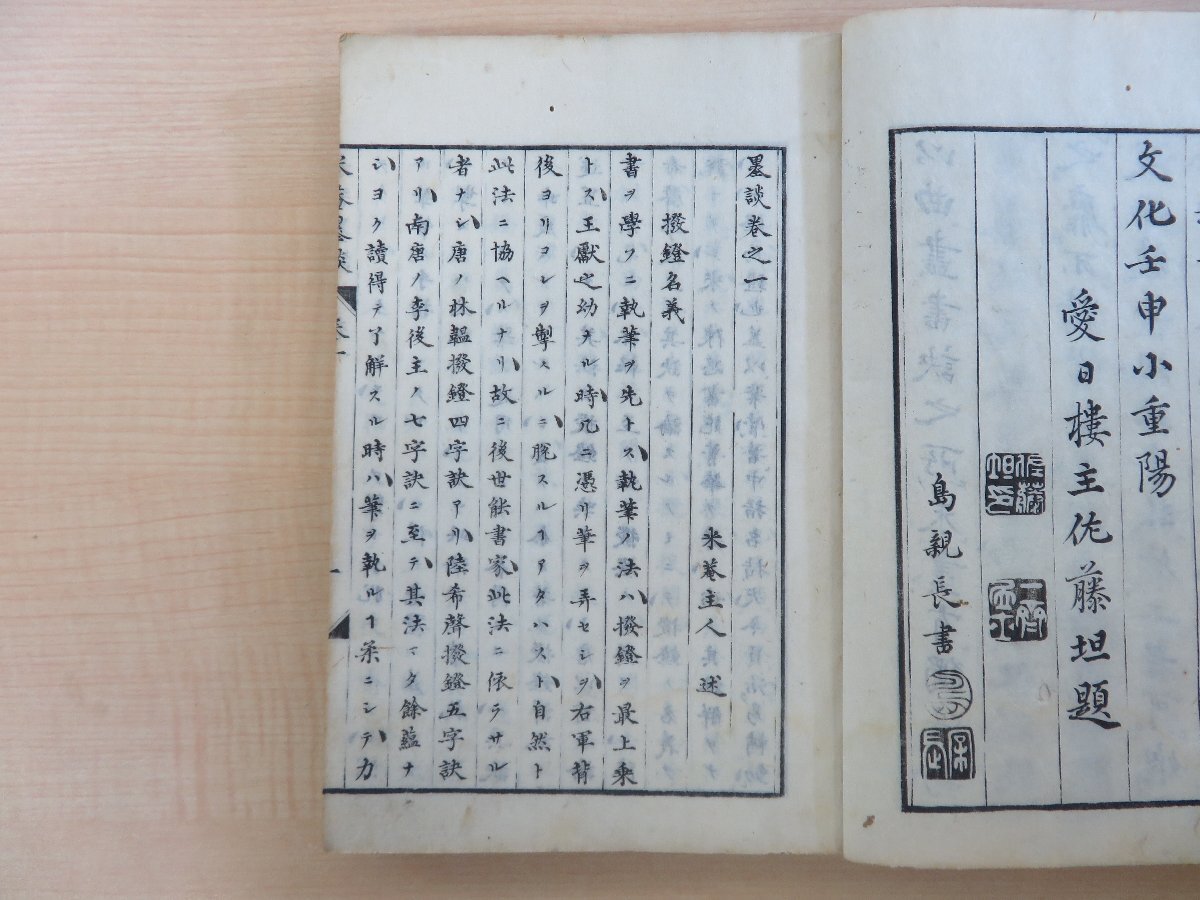 文化壬申小重陽
愛日樓主佐藤坦題
島親長書
墨談卷之一
米菴主人述
撥鐙名義
書ヲ學フニ執筆ヲ先トス執筆ノ法ハ撥鐙ヲ最上乘
トス王獻之幼ナル時几ニ憑リ筆ヲ弄セシヲ右軍背
後ヨリコレヲ掣スルニ脱スルヿアタハスト自然ト
此法ニ協ヘルナリ故ニ後世能書家此法ニ依ラサル
者ナシ唐ノ林韞撥鐙四字訣アリ陸希聲撥鐙五字訣
アリ南唐ノ李後主ノ七字訣ニ至テ其法マタ餘蘊ナ
シヨク讀得テ了解スル時ハ筆ヲ執ルヿ柔ニシテ力
米菴墨談 卷一 一